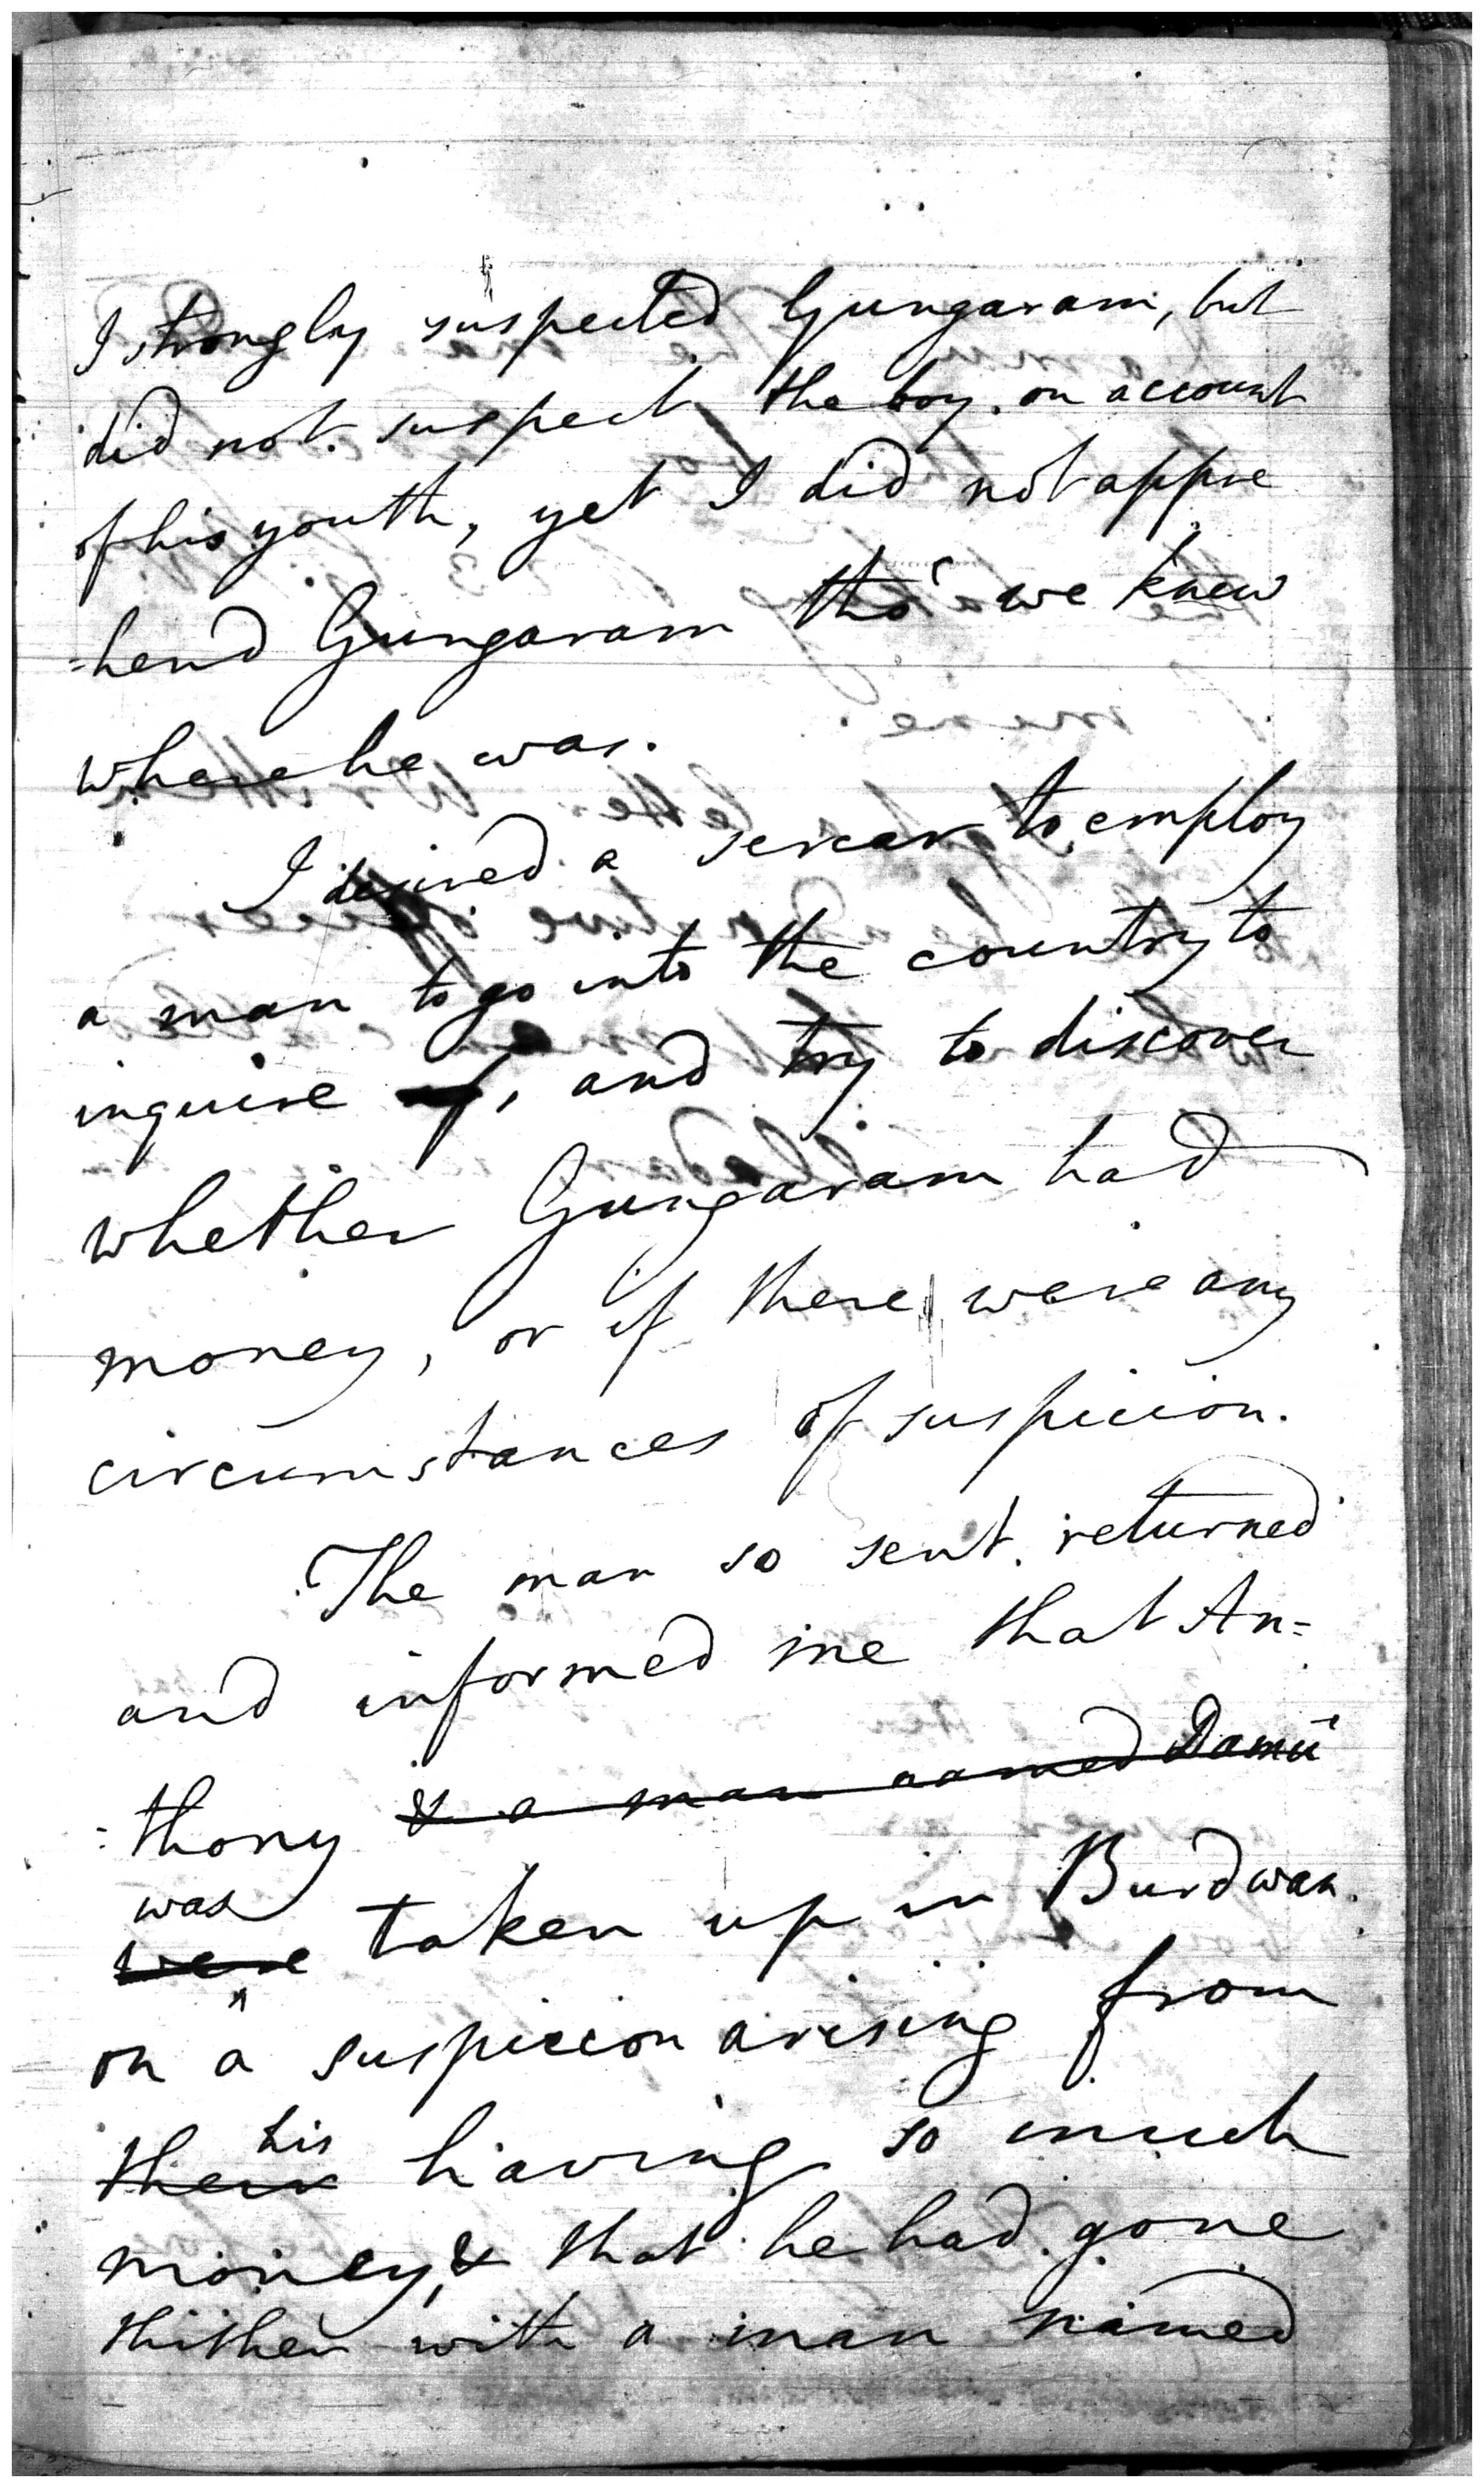 I strongly suspected Gungaram, but
did not suspect the boy on account
of his youth, yet I did not appre
=hend Gungaram tho' we knew
where he was.
I desired a sercar to employ
a man to go into the country to
inquire , and try to discover
whether Gungaram had
money, or if there were any
circumstances of suspicion.
The man so sent returned
and informed me that An=
=thony & a man named Damú
was
were taken up in Burdwan
on a suspicion arising from
his
their having so much
money, & that he had gone
thither with a man named